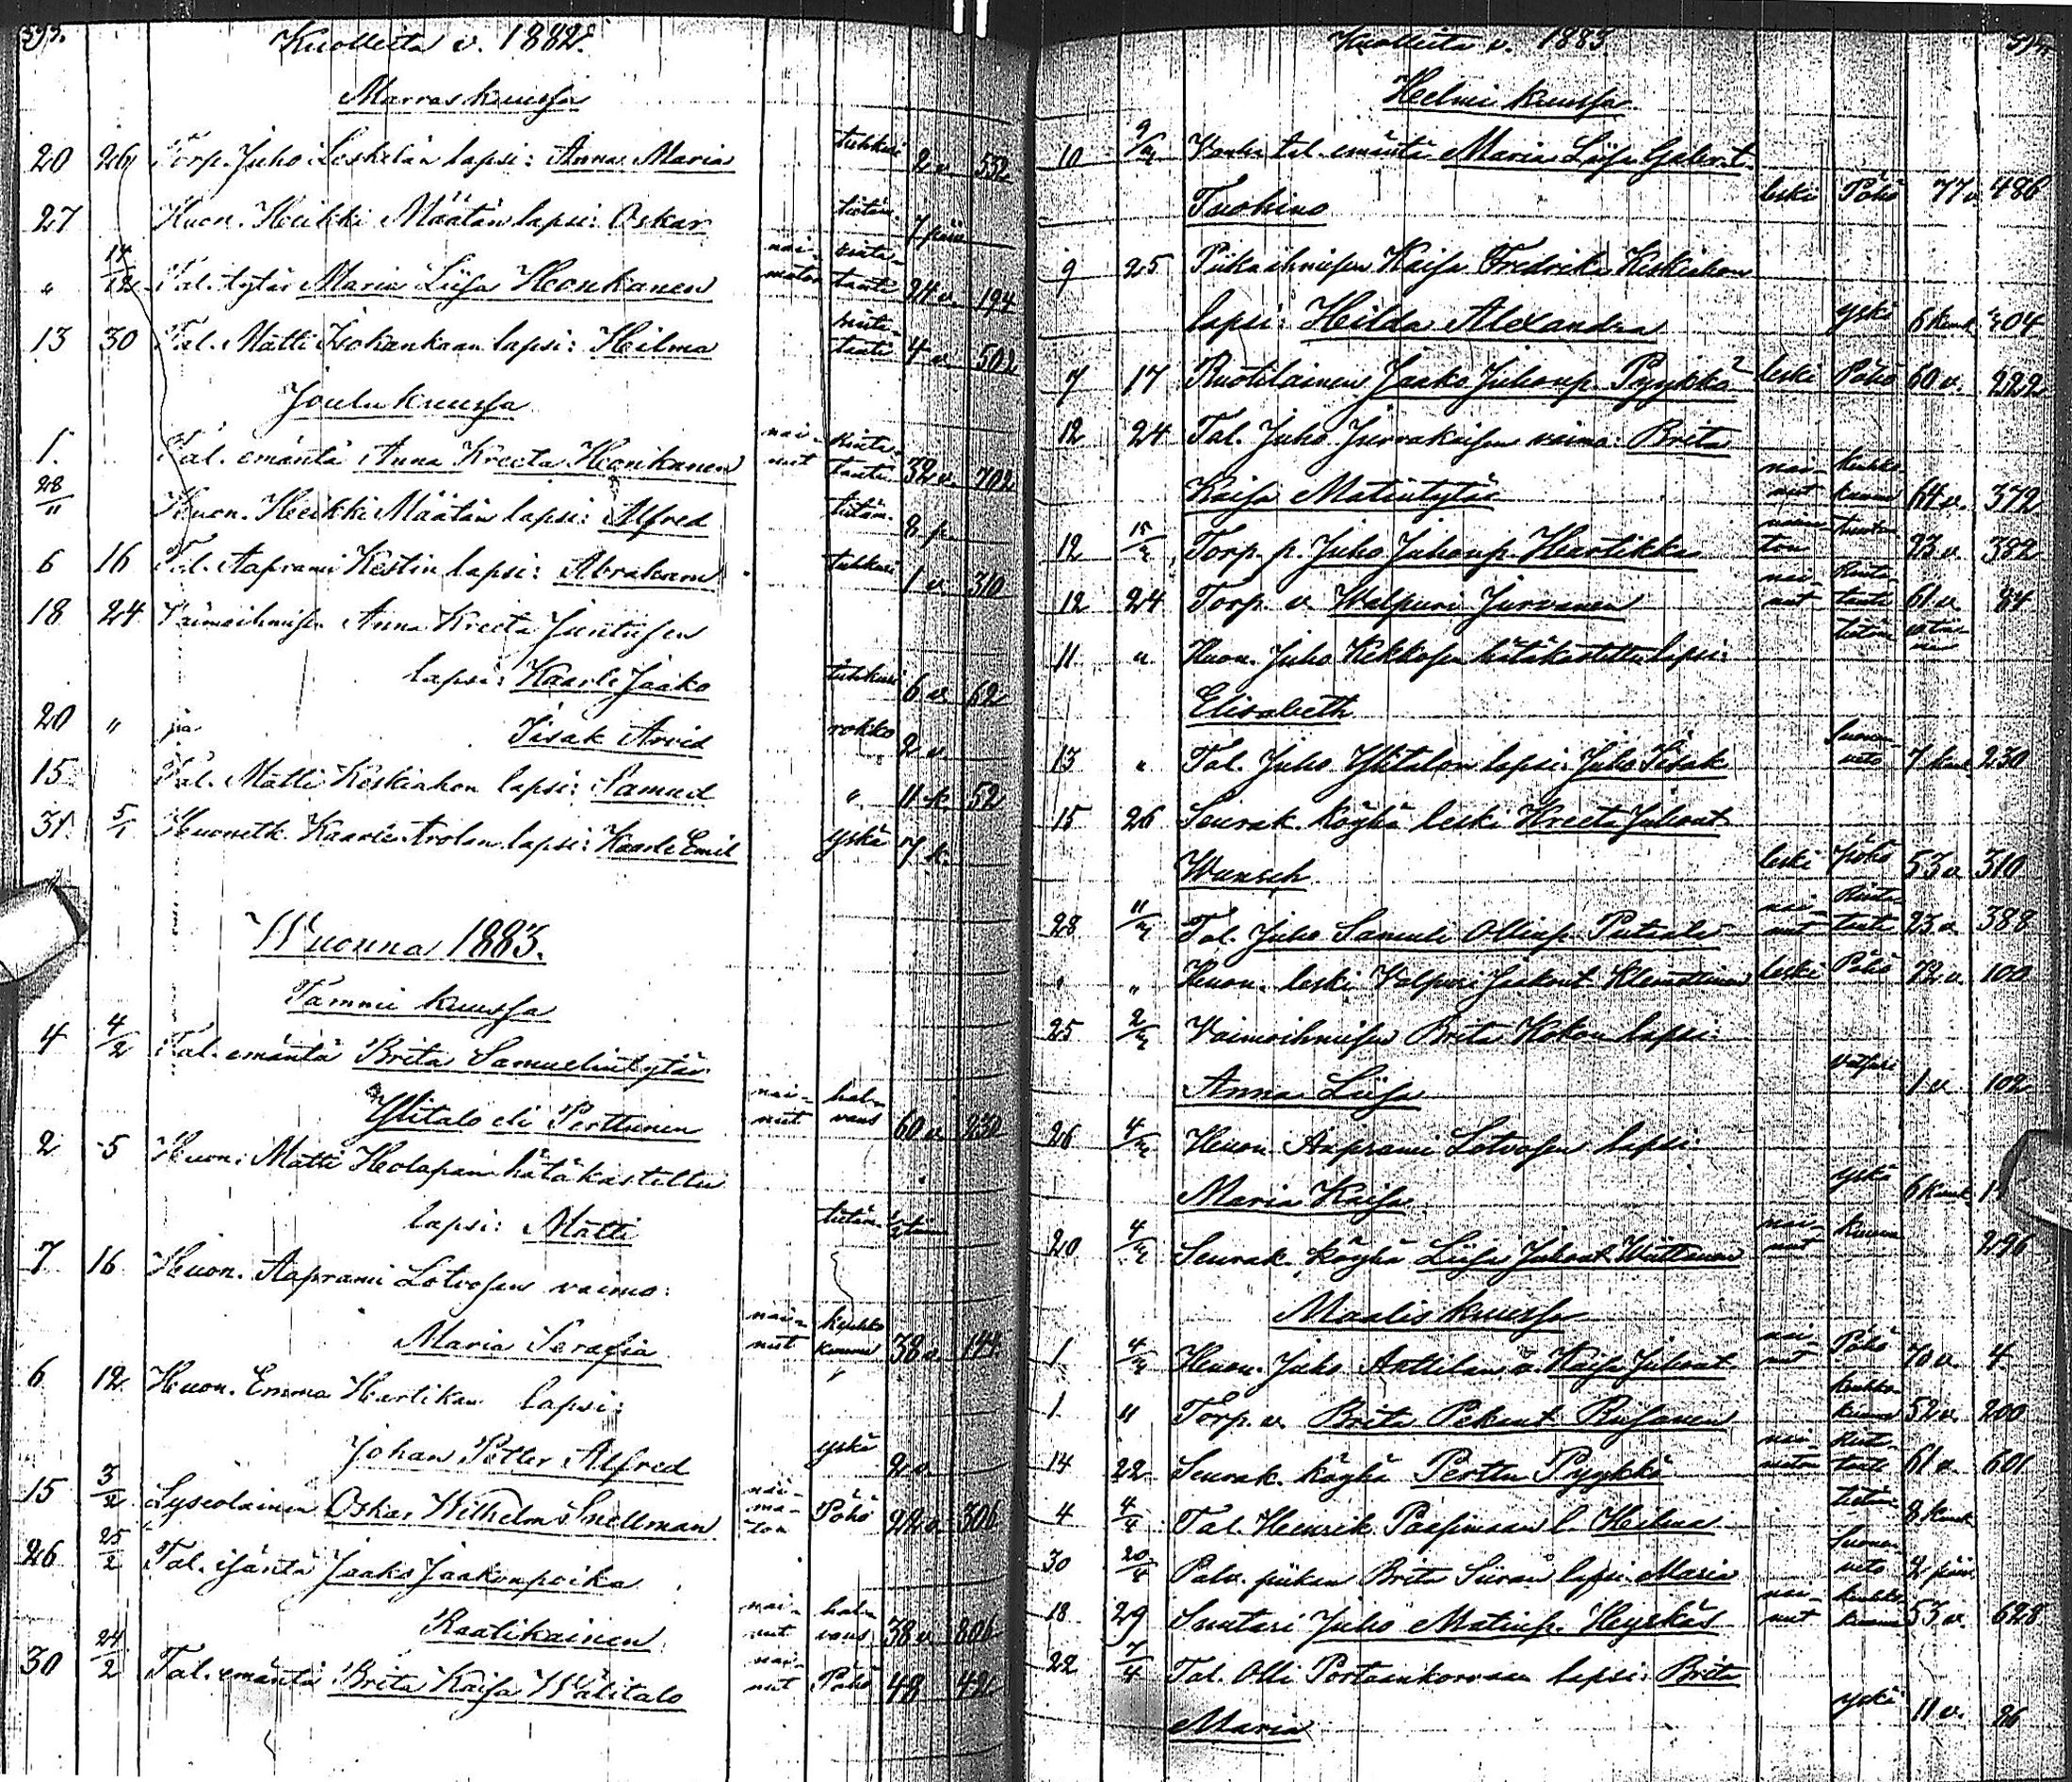 393.
Kuolleita v. 1882.
Marraskuussa
20 26 Torp. Juho Leskelän lapsi: Anna Maria tuhkuri 2 v. 552
27 Huon. Heikki Määtän lapsi: Oskar tietäm. 7 päiv
" 14/12 Tal. tytär Maria Liisa Honkanen nai-maton rinta-tauti 24 v. 194
13 30 Tal. Matti Isokankaan lapsi: Hilma rinta-tauti 4 v. 502
Joulukuussa
1. Tal. emäntä Anna Kreeta Honkanen nai-nut rinta-tauti 32 v. 702
28/11 Huon. Heikki Määtän lapsi: Alfred tietäm. 8 p.
6 16 Tal. Aaprami Kestin lapsi: Abraham tuhkuri 1 v. 310
18 24 Vaimoihmisen Anna Kreeta Juntusen
lapsi: Kaarle Jaako tuhkuri 6 v. 62
20 " ja Iisak Arvid rokko 2 v.
15 " Tal. Matti Keskiahon lapsi: Samuel " 11 k. 52
31. 5/1 Huonetk. Kaarle Arolan lapsi: Kaarle Emil yskä 7 k.
Wuonna 1883.
Tammikuussa
4 4/2 Tal. emäntä Brita Samuelintytär
Ylitalo eli Perttunen nai-nut hal-vaus 60 v. 230
2 5 Huon. Matti Holapan hätäkastettu
lapsi: Matti tietäm.
7 16 Huon. Aaprami Lotvosen vaimo:
Maria Serafia nai-nut keuhko kuume 38 v. 144
6 12 Huon. Emma Hartikan lapsi:
Johan Petter Alfred yskä 2 v.
15 3/2 Lyseolainen Oskar Wilhelm Snellman nai-ma-ton Pöhö 22 v. 306
26 25/2 Tal. isäntä Jaako Jaakonpoika
Raatikainen nai-nut hal-vaus 38 v. 806
30 24/2 Tal. emäntä Brita Kaisa Wälitalo nai-nut Pöhö 48
Kuolleita v. 1883
Helmikuussa
10 Wanha tal. emäntä Maria Liisa
Tuohino leski Pöhö 77 v. 486
9 25 Piikaihmisen Kaisa Fredrika Keskiahon
lapsi: Hilda Alexandra yskä 6 kuuk. 204
7 17 Ruotilainen Jaako Juhonp. Pyykkö leski Pöhö 60 v. 222
12 24 Tal. Juho Jurvakaisen vaimo: Brita
Kaisa Matintytär nai-nut keuhko kuume 64 v. 372
12 Torp. p. Juho Juhonp. Hartikka naima-ton 23 v. 382
12 24 Torp. v. Walpuri Jurvanen nai-nut Rinta-tauti 61 v. 84
11 " Huon. Juho Kekkosen hätäkastettu lapsi: tietäm.
Elisabeth
13 " Tal. Juho Ylitalon lapsi: Juho Iisak Suonen-veto 7 kuuk 230
15 26 Seurak. köyhä leski Kreeta Juhont.
Wunsch leski pöhö 53 v. 310
28 Tal. Juho Samuli Ollinp. Putula nai-nut Rinta-tauti 23 v. 388
" " Huon. leski Valpuri Jaakont. Klemettinen leski Pöhö 72 v. 100
25 Vaimoihmisen Brita Kokon lapsi:
Anna Liisa 1 v. 102
26 Huon. Aaprami Lotvosen lapsi:
Maria Kaisa yskä 6 kuuk.
20 Seurak. köyhä Liisa Juhont. Wuttunen nai-nut kuume 296
Maaliskuussa
1 Huon. Juho Anttilan v. Kaisa Juhont. nai-nut Pöhö 70 v. 4
1 11 Torp. v. Brita Pekant. Rusanen keuhko-kuume 52 v. 200
14 22 Seurak. köyhä Perttu Pyykkö nai-maton Rint-tauti 61 v. 601
4 4/4 Tal. Henrik Paasimaan l. Hilma tietäm. 8 kuuk
30 20/4 Palv. piikan Brita Siiran lapsi Maria Suonen-veto 2 päiv.
18 29 Suutari Juho Matinp. Heyskäs nai-nut keuhko kuume 53 v. 628
22 7/4 Tal. Olli Portaankorvan lapsi: Brita
Maria yskä 11 v. 26